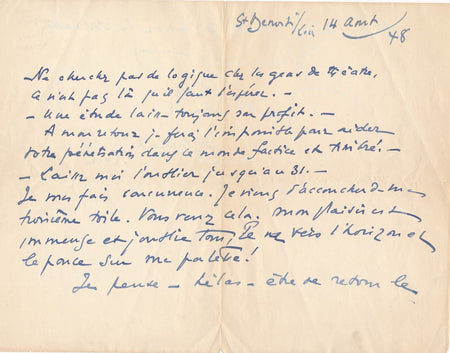 St Benoit s/Loire 14 Août / 48
Ne cherchez pas de logique chez les gens de théâtre,
ce n'est pas là qu'il faut l'espérer. -
- Une étude laisse toujours son profit. -
A mon retour je ferai l'impossible pour aider
votre pénétration dans le monde factice et timbré. -
- Laissez moi l'oublier jusqu'au 31. -
Je me fais concurrence. Je viens d'accoucher de ma
troisième toile. Vous verrez cela. mon plaisir est
immense et j'oublie tout, l'œil vers l'horizon et
le pouce sur ma palette !
Je pense - hélas - être de retour le